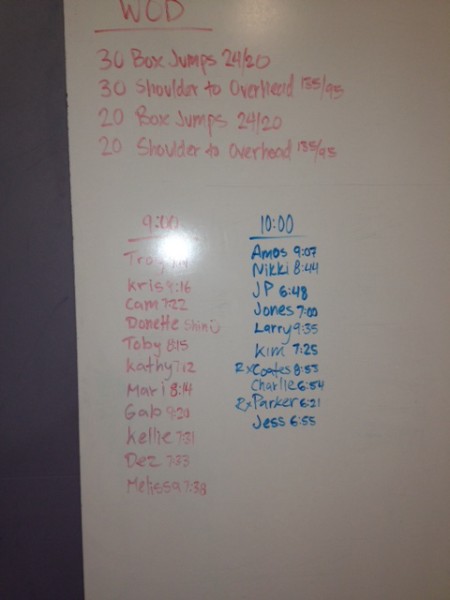 WOD
30 Box Jumps 24/20
30 Shoulder to Overhead 135/95
20 Box Jumps 24/20
20 Shoulder to Overhead 135/95
9:00
Troy
Kris 9:16
Cam 7:22
Donette Shin
Toby 8:15
Kathy 7:12
Mari 8:14
Gabo 9:20
Kellie 7:31
Dez 7:33
Melissa 7:38
10:00
Amos 9:07
Nikki 8:44
JP 6:48
Jones 7:00
Larry 9:35
Kim 7:25
Rx Coates 8:55
Charlie 6:54
Rx Parker 6:21
Jess 6:55